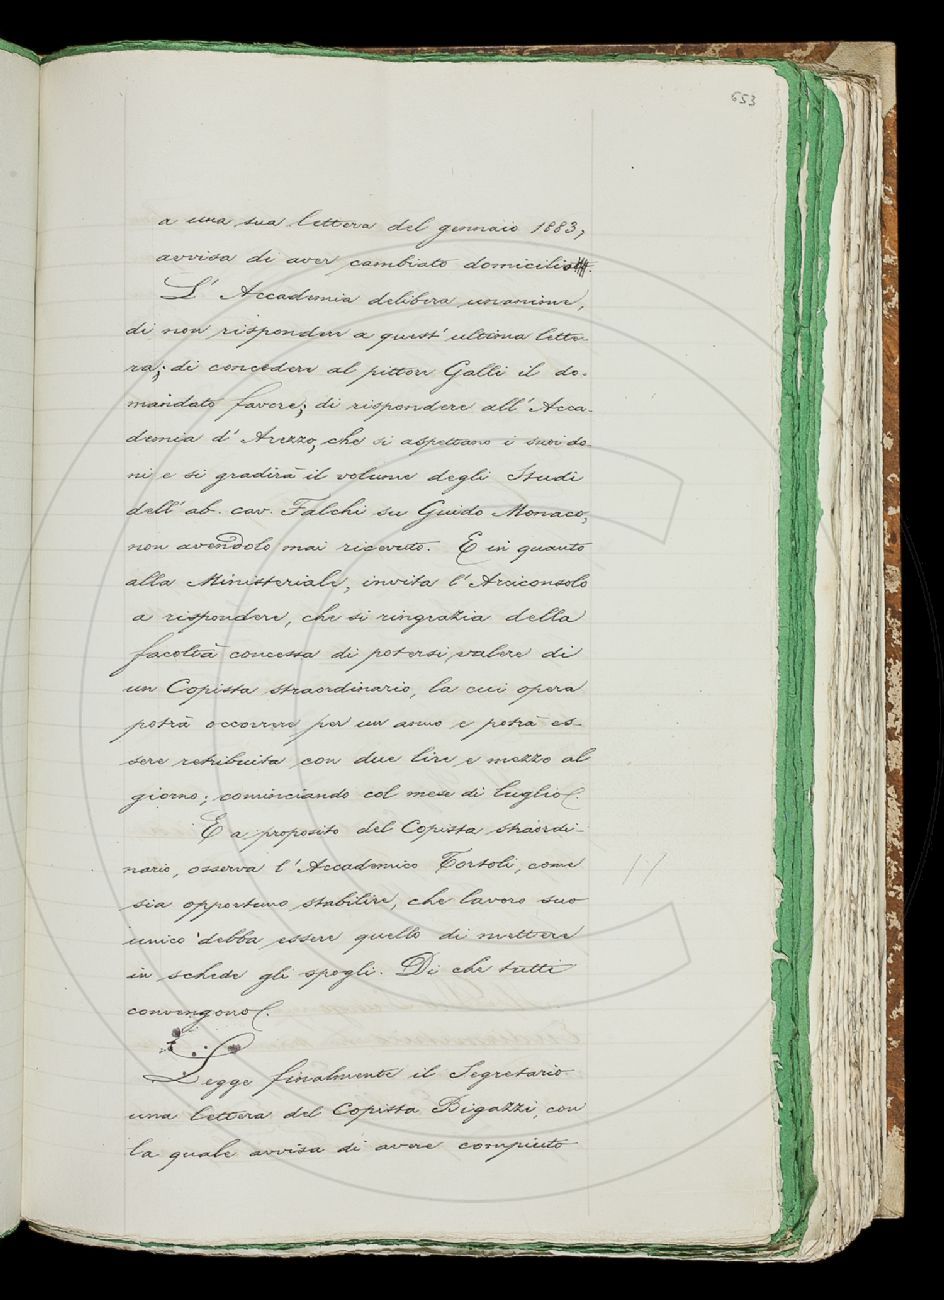 653
a una sua lettera del gennaio 1883,
avvisa di aver cambiato domicilio.
L' Accademia delibera unanime,
di non rispondere a quest' ultima lette-
ra; di concedere al pittore Galli il do-
mandato favore; di rispondere all' Acca-
demia d' Arezzo, che si aspettano i suoi do-
ni e si gradirà il volume degli Studi
dell' ab. cav. Falchi su Guido Monaco,
non avendolo mai ricevuto. E in quanto
alla Ministeriale, invita l' Arciconsolo
a rispondere, che si ringrazia della
facoltà concessa di potersi valere di
un Copista straordinario, la cui opera
potrà occorrere per un anno e potrà es-
sere retribuita con due lire e mezzo al
giorno; cominciando col mese di luglio.
E a proposito del Copista straordi-
nario, osserva l' Accademico Tortoli, come
sia opportuno stabilire, che lavoro suo
unico debba essere quello di mettere
in schede gli spogli. Di che tutti
convengono.
Legge finalmente il Segretario
una lettera del Copista Bigazzi, con
la quale avvisa di avere compiuto